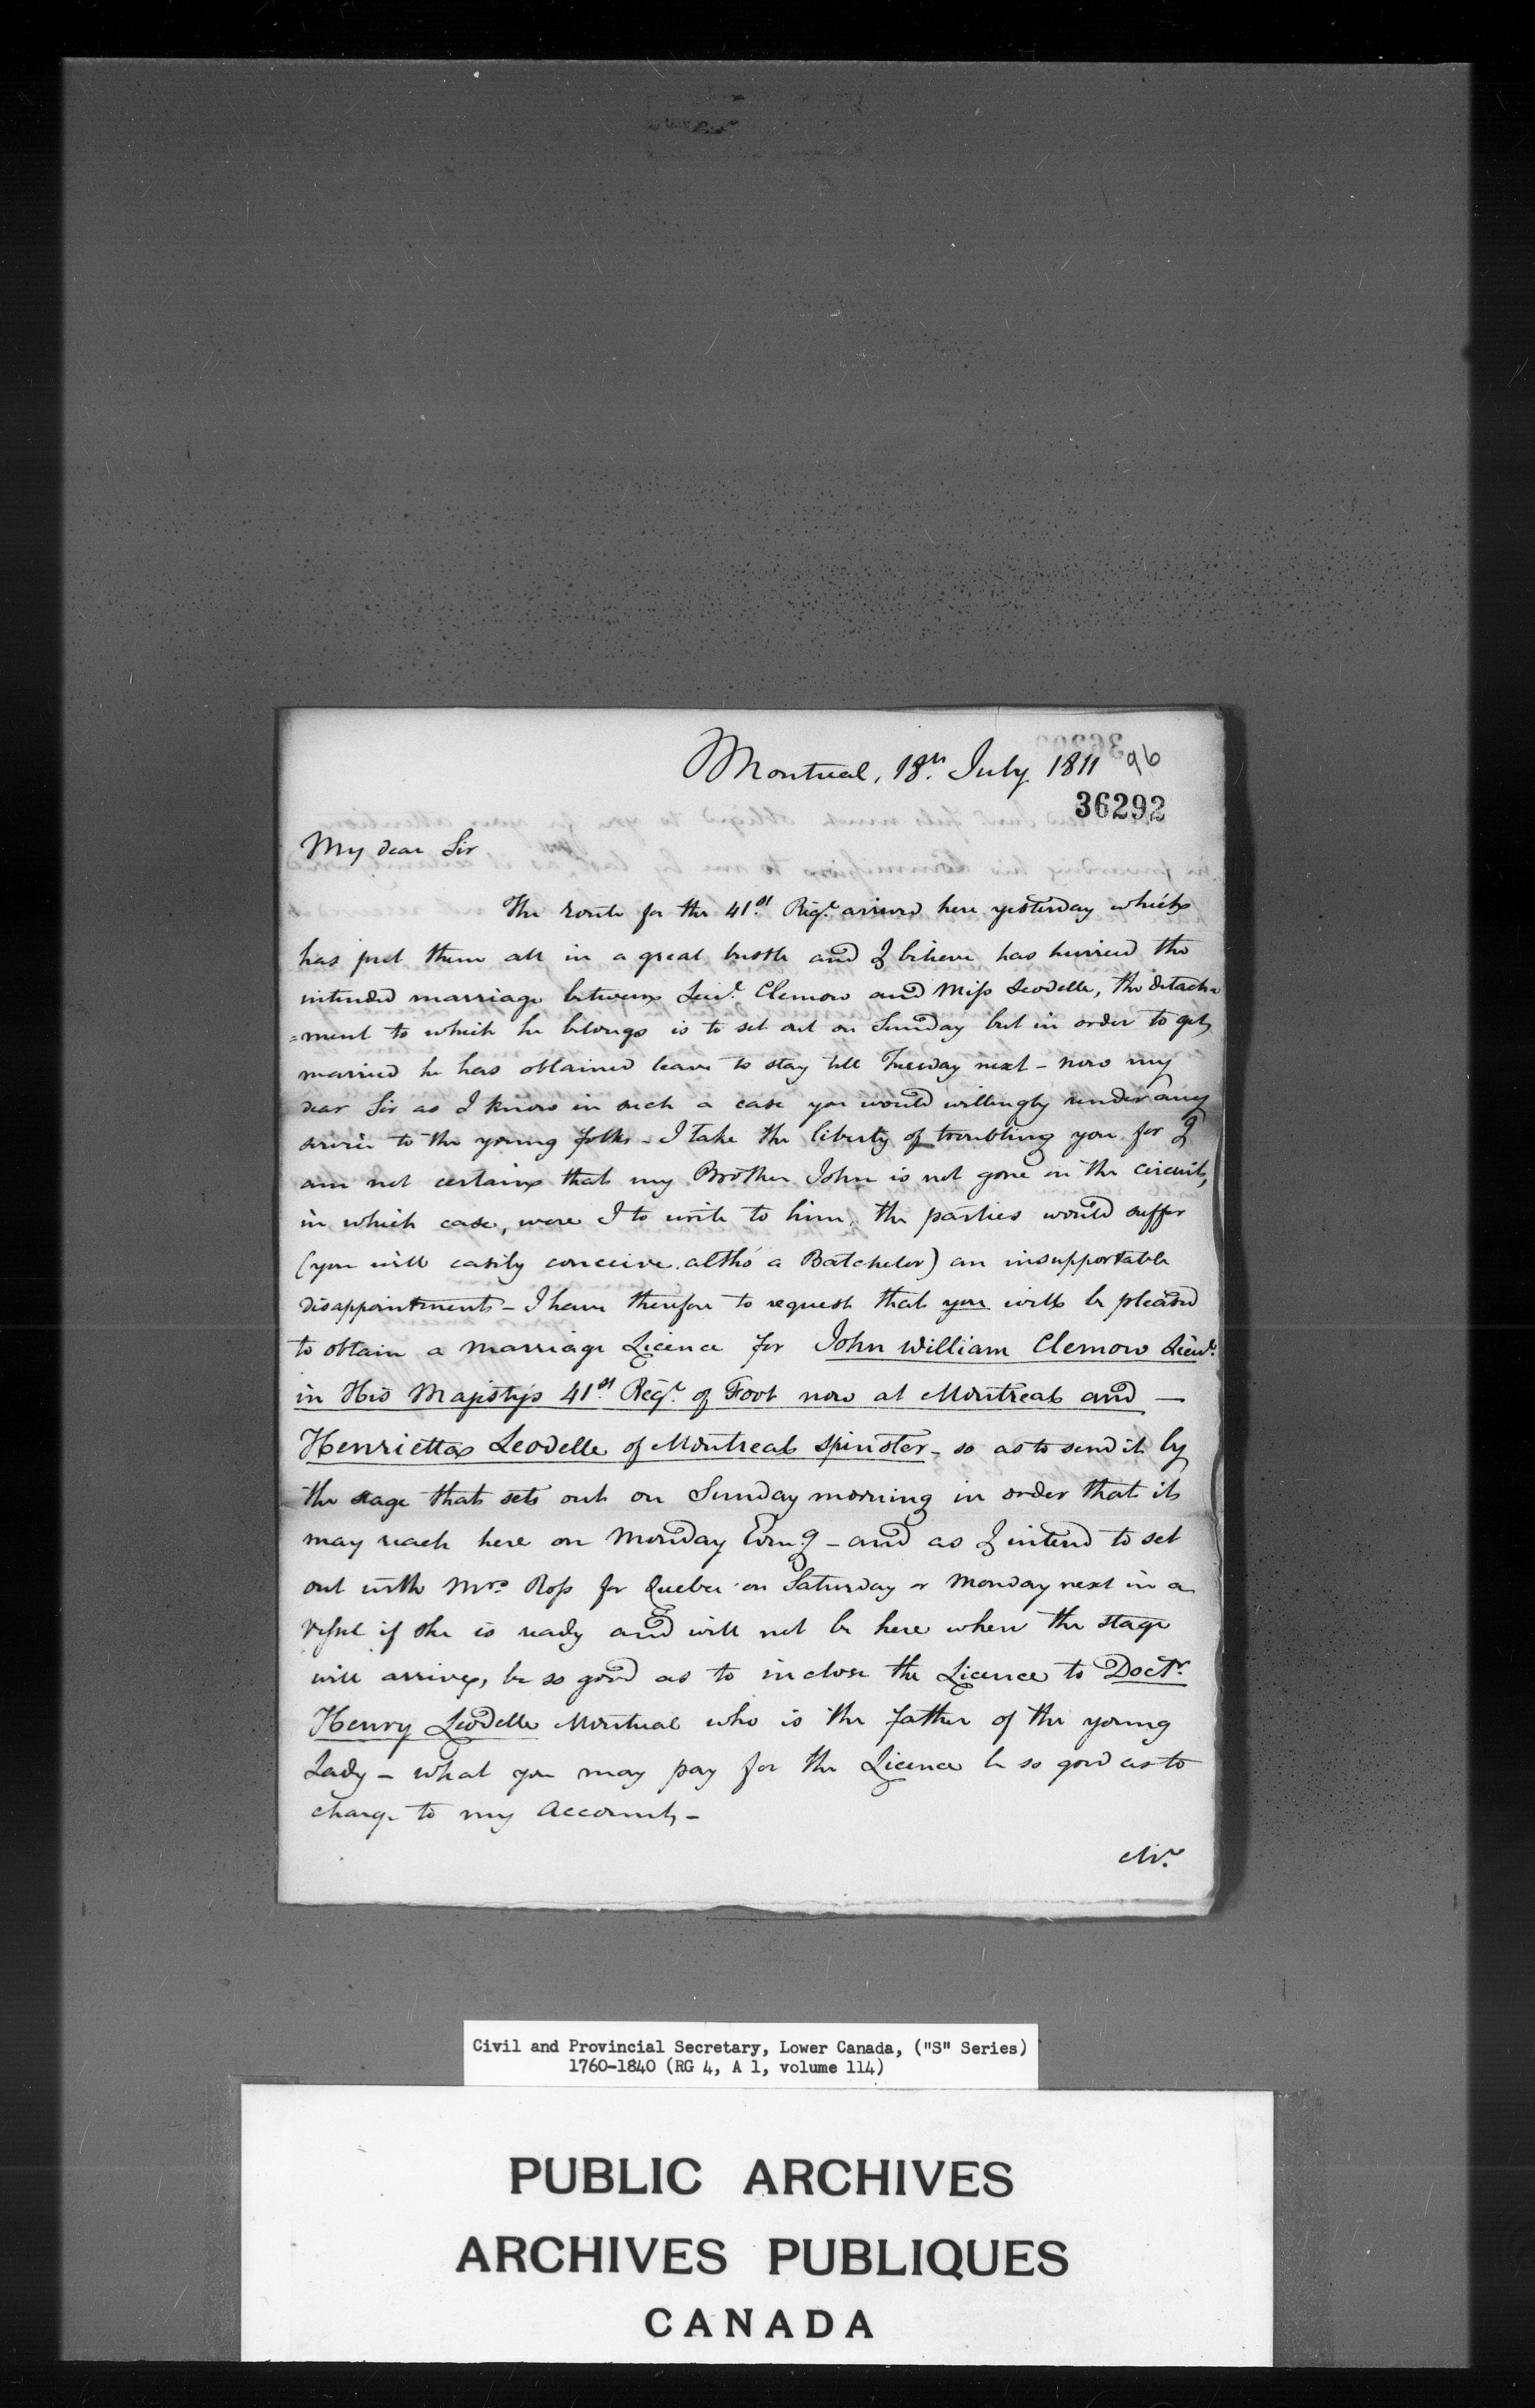 Montreal, 18th. July 1811 96
36292
My dear Sir
The route for the 41st. Regt. arrived here yesterday which
has put them all in a great bustle and I believe has hurried the
intended marriage between Lieut. Clemow and Miss Leodelle, the detach=
=ment to which he belongs is to set out on Sunday but in order to get
married he has obtained leave to stay till Tuesday next - now my
dear Sir as I know in such a case you would willingly render any
service to the young folks - I take the liberty of troubling you for I
am not certain that my Brother John is not gone on the circuit,
in which case, were I to write to him, the parties would suffer
(you will easily conceive altho' a Batchelor) an insupportable
disappointment - I have therefore to request that you will be pleased
to obtain a marriage Licence for John William Clemow Lieut.
in His Majesty's 41st. Regt. of Foot now at Montreal and -
Henrietta Leodelle of Montreal spinster - so as to send it by
the stage that sets out on Sunday morning in order that it
may reach here on Monday Evng - and as I intend to set
out with Mrs. Ross for Quebec on Saturday or Monday next in a
vessel if she is ready and will not be here when the stage
will arrive, be so good as to inclose the Licence to Doctr.
Henry Leodelle Montreal who is the father of the young
Lady - what you may pay for the Licence be so good as to
charge to my Account -
Mr.
Civil and Provincial Secretary, Lower Canada, ("S" Series)
1760-1840 (RG 4, A 1, volume 114)
PUBLIC ARCHIVES
ARCHIVES PUBLIQUES
CANADA